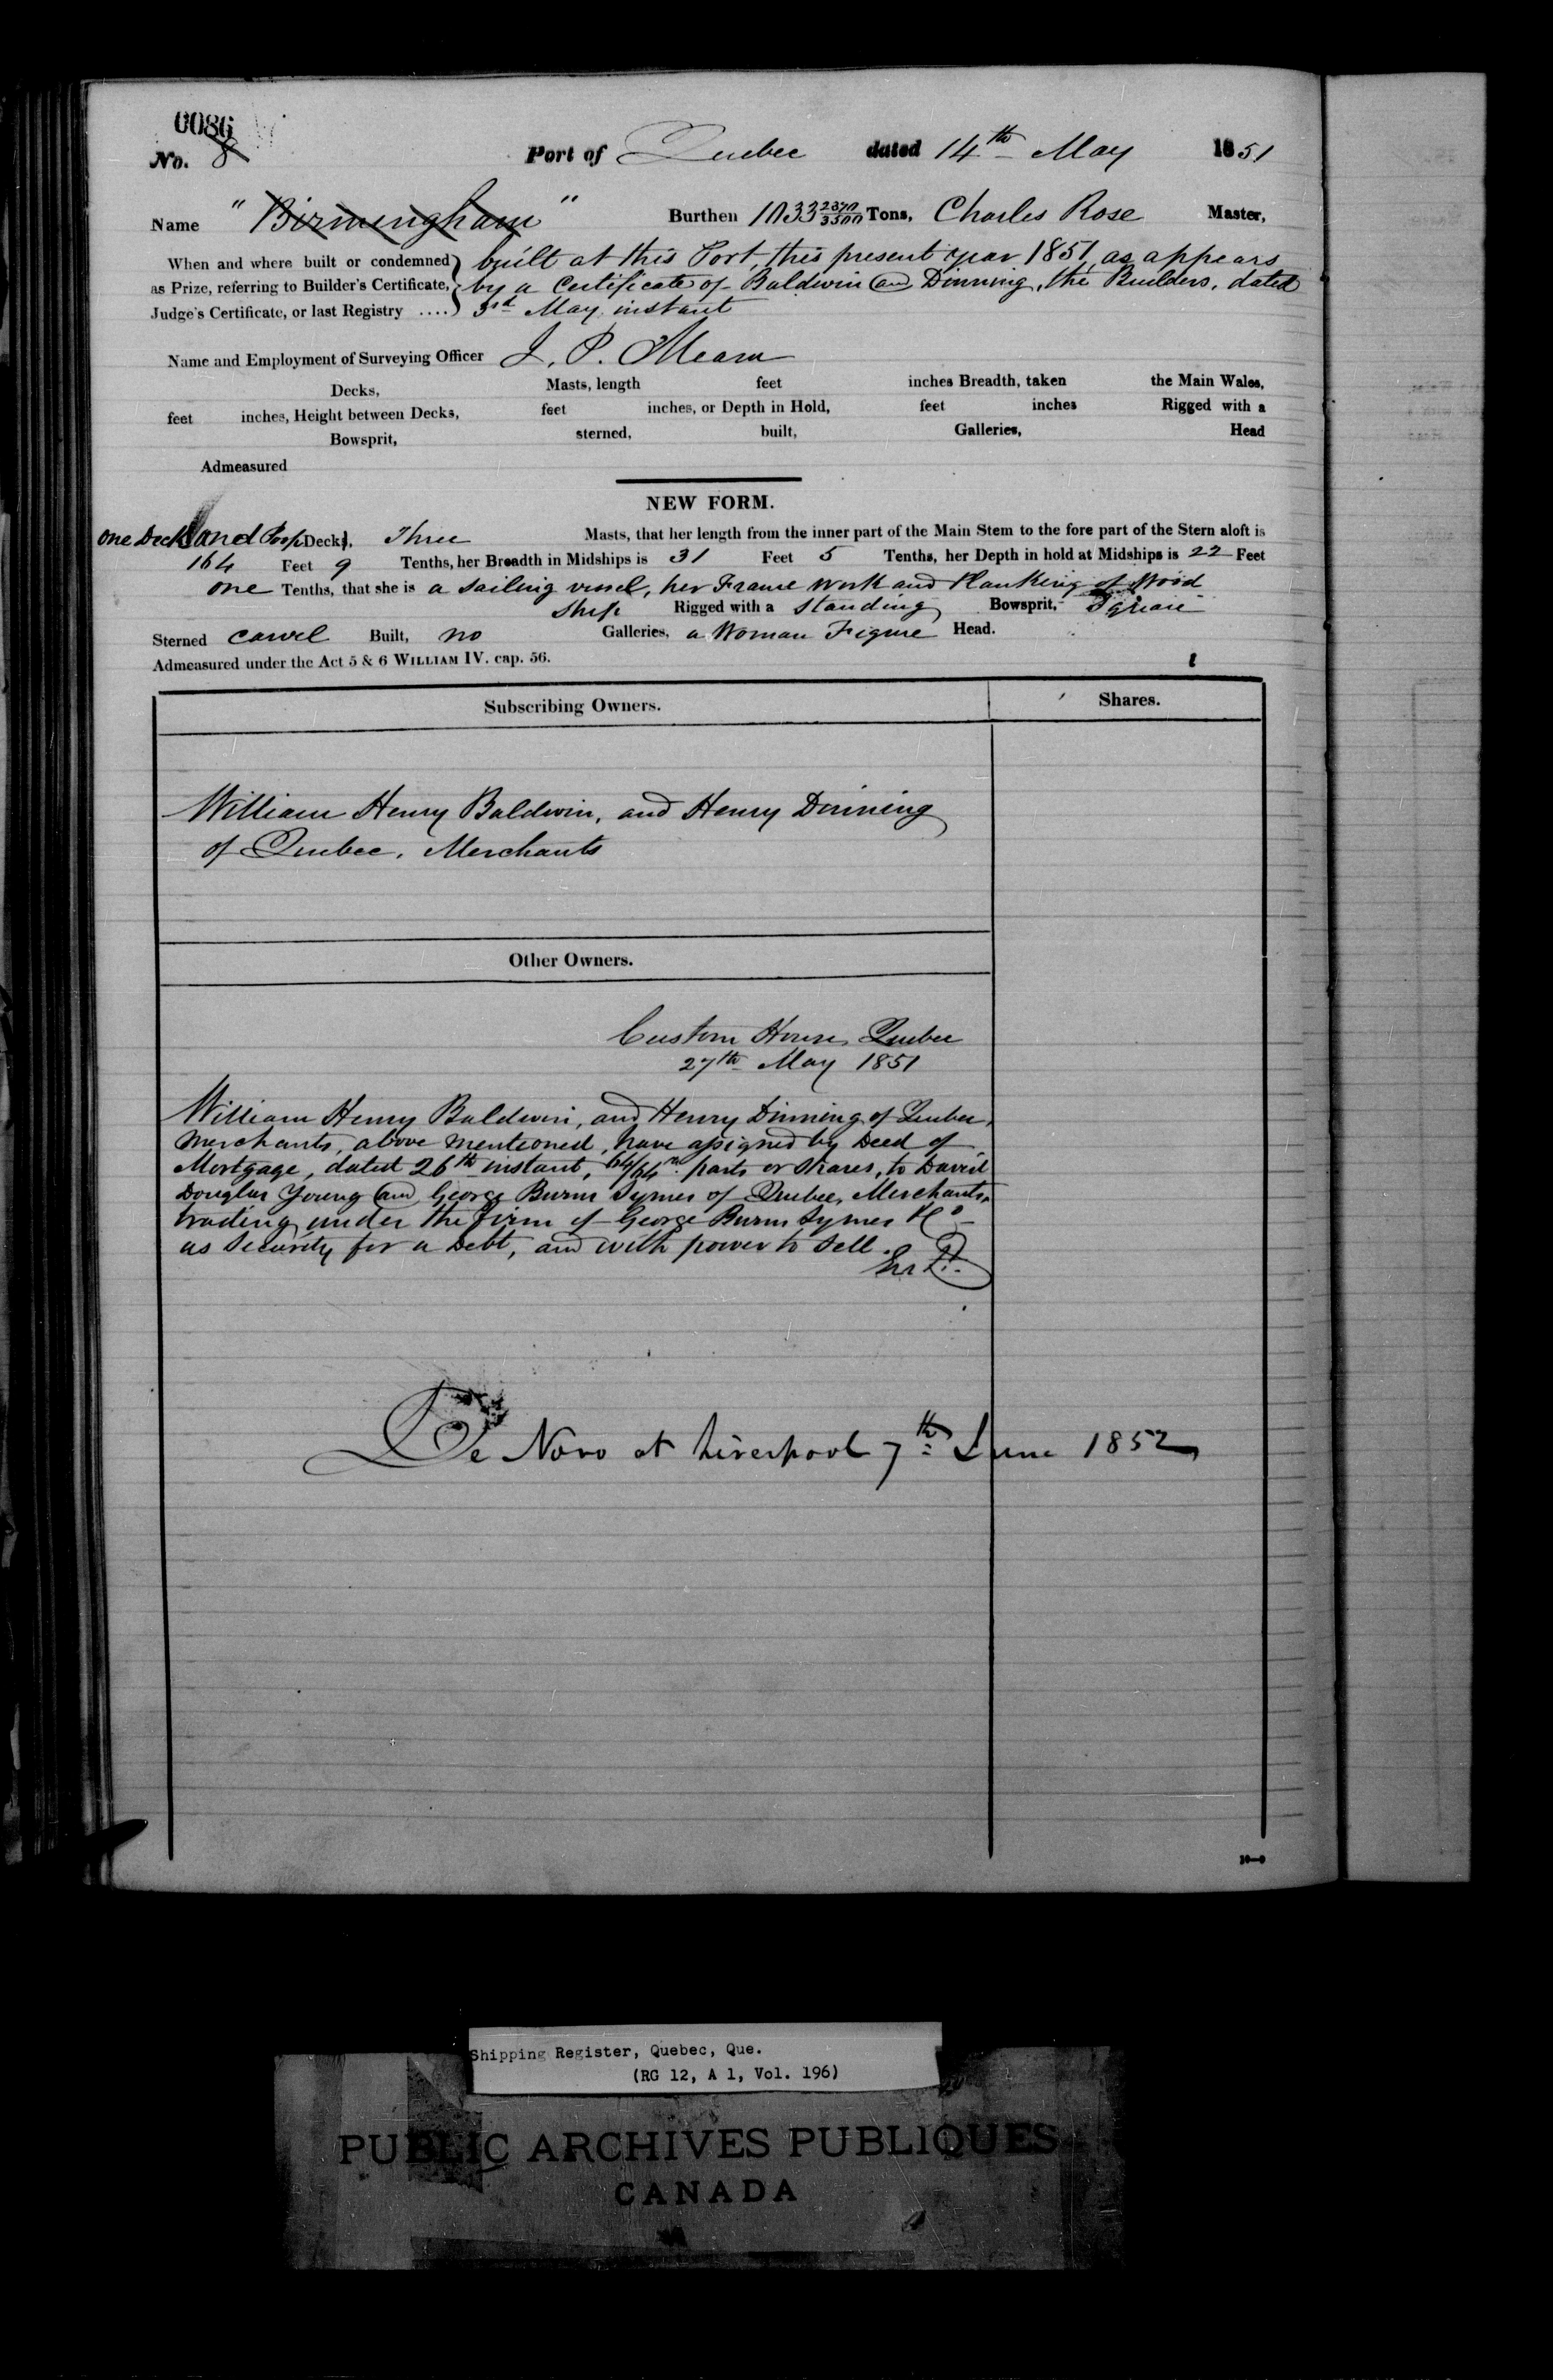 0086
No. 8 Port of Quebec dated 14th May 1851
Name "Birmingham" Burthen 1033 2370/3500 Tons, Charles Rose Master,
When and where built or condemned built at this Port, this present year 1851, as appears
as Prize, referring to Builder's Certificate, by a Certificate of Baldwin and Dinning, the Builders, dated
Judge's Certificate, or last Registry .... 3rd May instant
Name and Employment of Surveying Officer J. P. Meara
Decks, Masts, length feet inches Breadth, taken the Main Wales,
feet inches, Height between Decks, feet inches, or Depth in Hold, feet inches Rigged with a
Bowsprit, sterned, built, Galleries, Head
Admeasured
NEW FORM.
One Deck and Poop Deck, Three Masts, that her length from the inner part of the Main Stem to the fore part of the Stern aloft is
164 Feet 9 Tenths, her Breadth in Midships is 31 Feet 5 Tenths, her Depth in hold at Midships is 22 Feet
one Tenths, that she is a sailing vessel, her Frame work and Planking of Wood
Ship Rigged with a Standing Bowsprit, Square
Sterned Carvel Built, no Galleries, a Woman Figure Head.
Admeasured under the Act 5 & 6 WILLIAM IV. cap. 56.
Subscribing Owners. Shares.
William Henry Baldwin, and Henry Dinning
of Quebec, Merchants
Other Owners.
Custom House, Quebec
27th May 1851
William Henry Baldwin, and Henry Dinning of Quebec,
Merchants, above mentioned, have assigned by Deed of
Mortgage, dated 26th instant, 64/64th parts or shares, to David
Douglas Young and George Burns Symes of Quebec, Merchants,
trading under the firm of George Burns Symes & Co
as Security for a Debt, and with power to sell.
De Novo at Liverpool 7th June 1852
10—9
Shipping Register, Quebec, Que.
(RG 12, A 1, Vol. 196)
PUBLIC ARCHIVES PUBLIQUES
CANADA